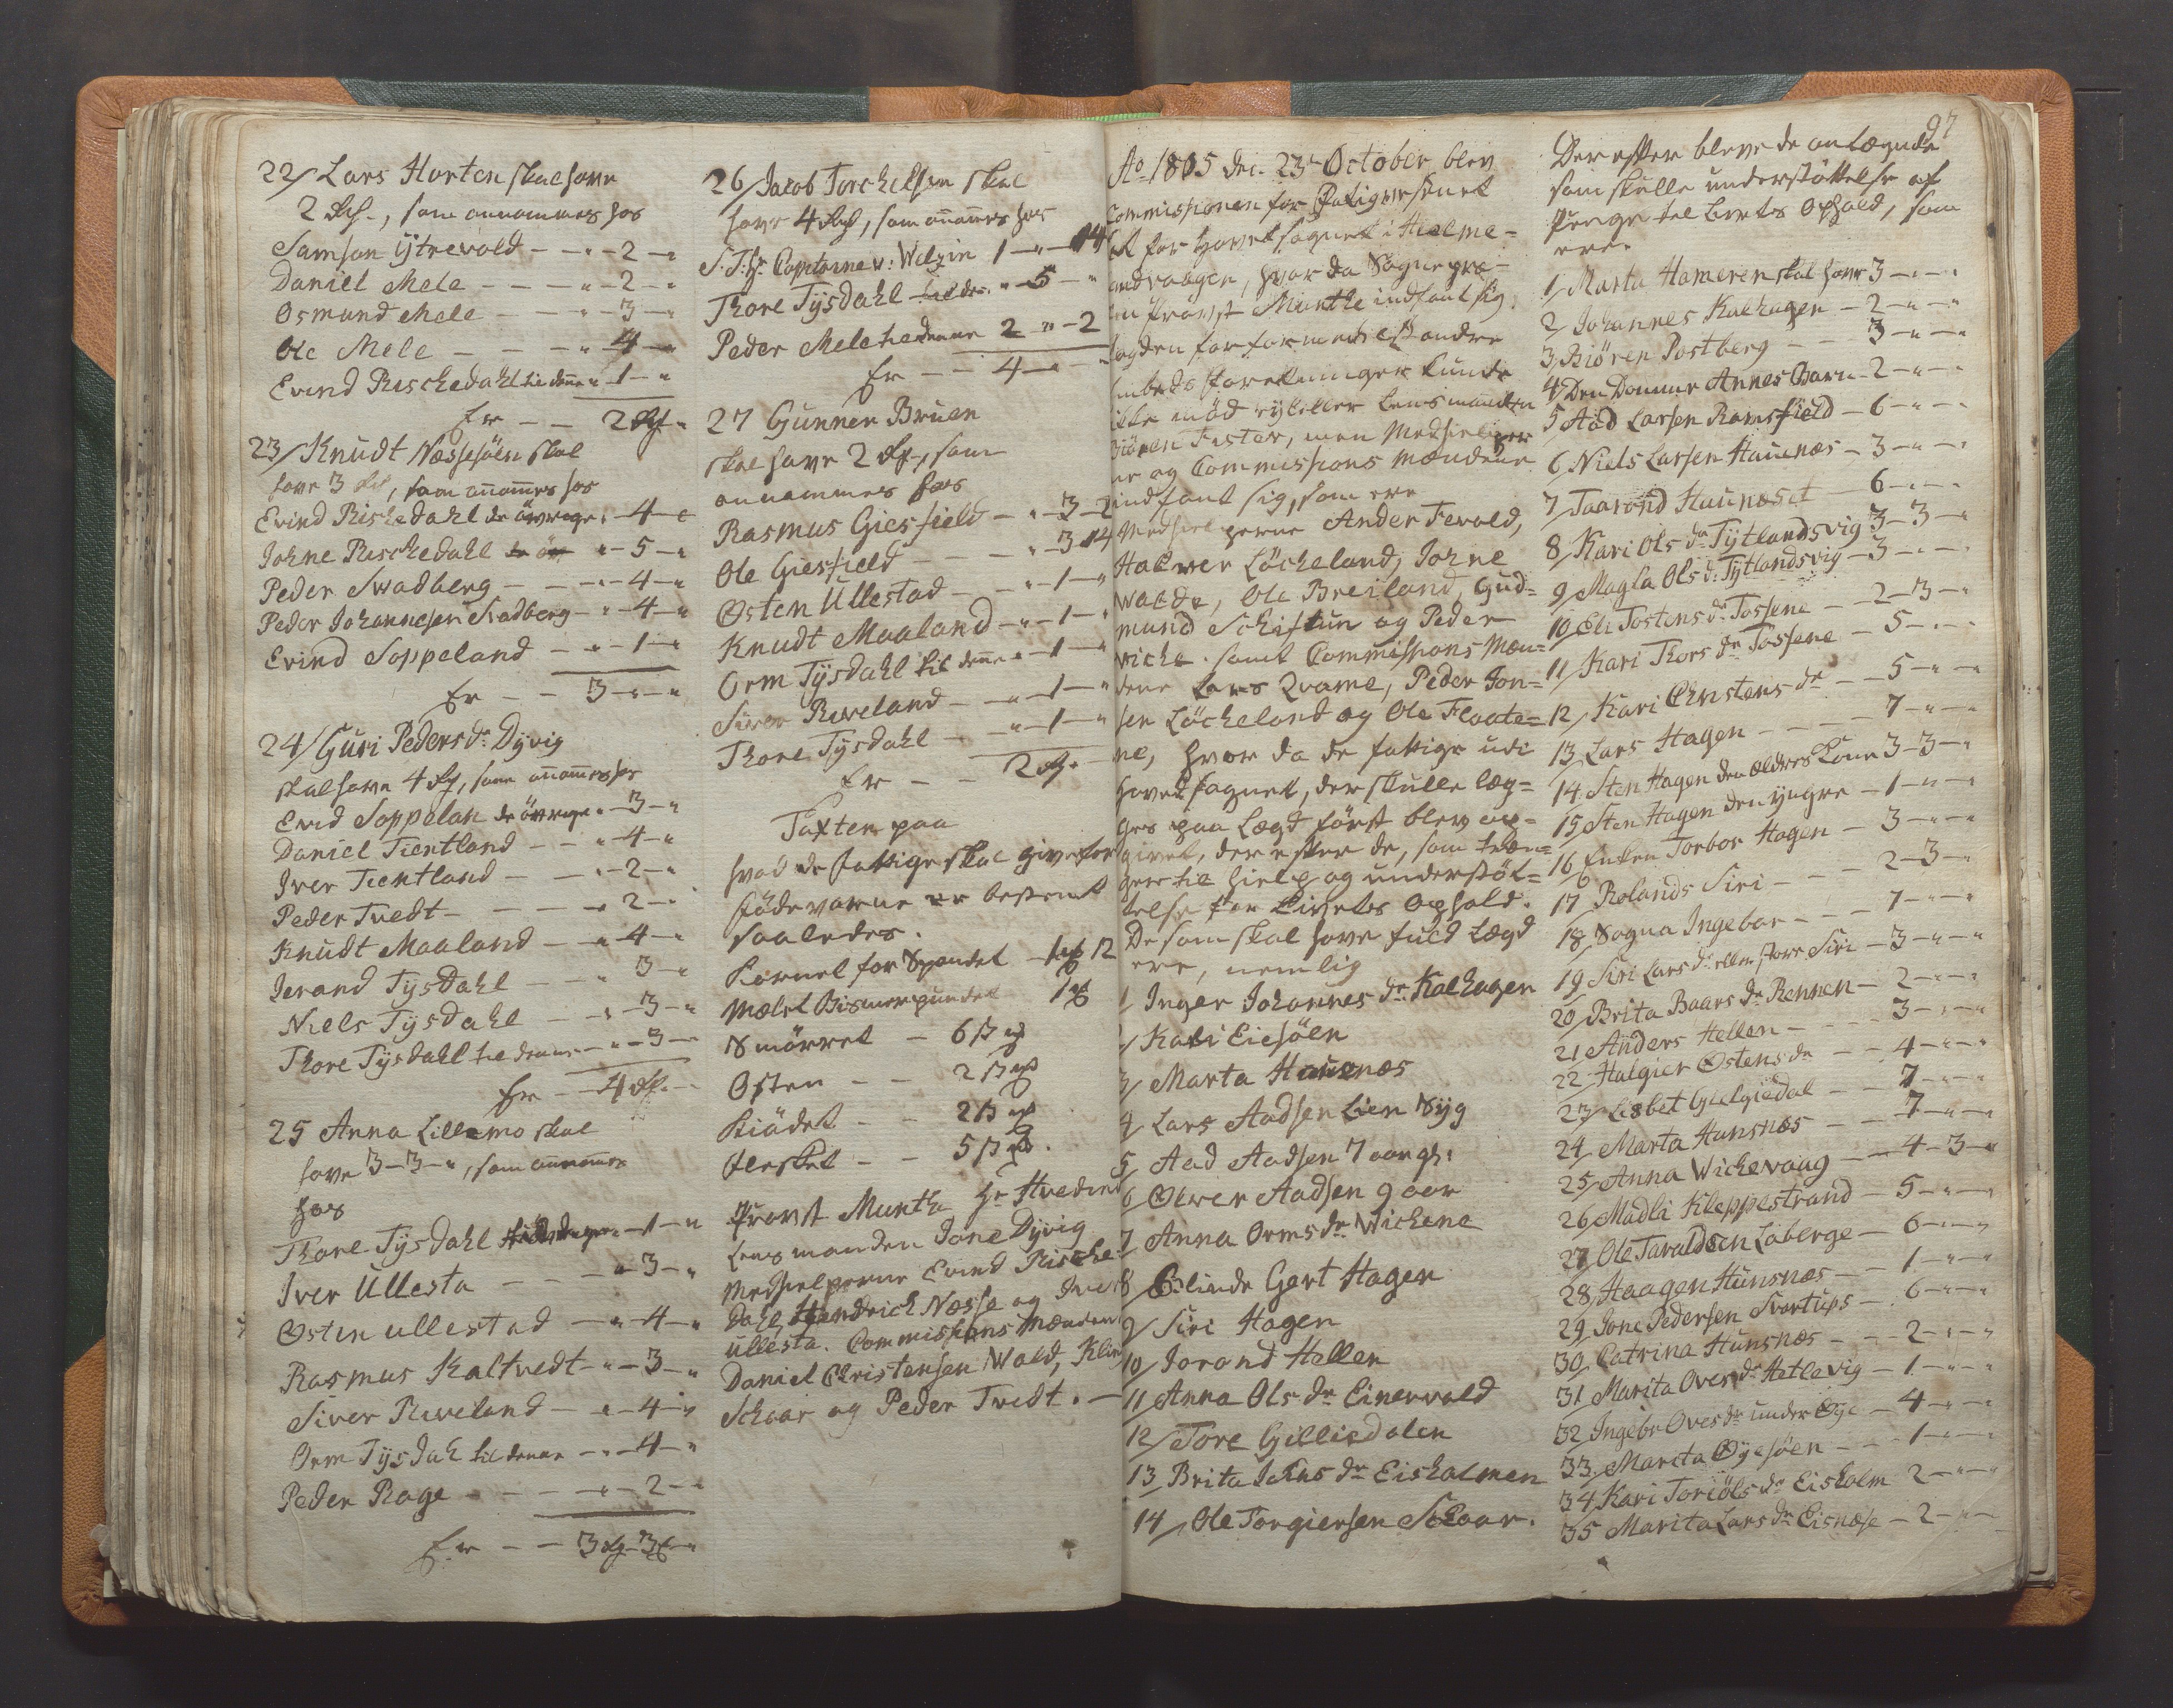 22/ Lars Horten skal have
2 Rd., som annammes hos
Samson Ytrevold - - " - 2 - "
Daniel Mele - - - " - 2 - "
Osmund Mele - - " - 3 - "
Ole Mele - - - " 4 - "
Evind Rischedahl til denne " - 1 - "
Er - - 2 Rd. "
23/ Knudt Næssesöen skal
have 3 Rd, som anammes hos
Evind Rischedahl de övrige " - 4 - "
Johne Rischedahl " - 5 - "
Peder Swadberg - - - " - 4 - "
Peder Johannesen Svadberg - " - 4 - "
Evind Soppeland - " - 1 - "
Er - - 3 - " - "
24/ Guri Pedersdr. Dyvig
skal have 4 Rd, som anammes hos
Evid Soppelan de övrige " - 3 - "
Daniel Tientland - - " - 4 - "
Iver Tientland - - " - 2 - "
Peder Tvedt - - - - " 2 - "
Knudt Maaland - " - 4 - "
Jerand Tysdahl - - " 3 - "
Niels Tysdahl - " - 3 - "
Thore Tysdahl til denne - " - 3 -
Er - 4 Rd. -
25 Anna Lillemo skal
have 3 - 3 - ", som anammes
hos
Thore Tysdahl - 1 - "
Iver Ullesta - - - " - 3 - "
Østen ullestad - " - 4 - "
Rasmus Kaltvedt - " - 3 - "
Siver Riveland - " - 4 - "
Orm Tysdah til denne - " - 4 - "
Peder Rage - - - - " - 2 - "
Er - - 3 Rd - 3 - "
26/ Jacob Torchelsen skal
have 4 Rd, som anammes hos
S. T. Hr. Captaine v: Welzin 1 - " - 14
Thore Tysdahl " - 5 - "
Peder Mele til denne 2 - " - 2
Er - - 4 - "
27 Gunner Bruen
skal have 2 Rd, som
annammes hos
Rasmus Giesfield - " - 3 - 2
Ole Giesfield - - " - 3 14
Østen Ullestad - - " - 1 - "
Knudt Maaland - " - 1 - "
Orm Tysdahl til denne " - 1 - "
Siver Riveland - - " - 1 - "
Thore Tysdahl - - " - 1 - "
Er - - 2 Rd. -
Taxten paa
hvad de fattige skal give for
födevarene er bestemt
saaledes.
Kornet for Spandet - 12
Mælet Bismerpundet 1
Smörret - 6
Osten - - 2
Kiödet - - 2
Flesket - - 5
Provst Munthe Hr Hvedind
Lensmanden Jone Dyvig
Medhielperne Evind Rische
Dahl, Hendrich Næsse og Iver
ullesta. Commissions Mændene
Daniel Christensen Wald, Klim
Schaar og Peder Tvedt. -
Ao. 1805 den 23de October blev
Commissionen for Fatigvæsenet
for Hovetsognet i Hielme=
andvaagen, hvor da Sognepræ-
Provst Munthe indfant sig.
fogden for formedelst andre
embeds foretninger kunde
ikke möd ey heller Lensmanden
Biören Fister, men Medhielper
ne og Commissions Mændene
indfant sig, som ere
Medhielperne Ander Fevold,
Halwer Löcheland, Johne
Walde, Ole Breiland, Gud=
mund Schiftun og Peder
viche. samt Commissions Mæn=
dene Lars Qvame, Peder Jon=
sen Löcheland og Ole Flaate=
ne, hvor da de fattige udi
Hovedsognet, der skulle læg=
ges paa Lægd först blev op=
givet, der efter de, som træn=
ger til hielp og understöt=
telse for Livets Ophold.
De som skal have fuld Lægd
ere, nemlig
1 Inger Johannes dr. Kalhagen
2/ Kari Eiesöen
3/ Marta Hauenæs
4/ Lars Aadsen Lien Syg
5 Aad Aadsen 7 aar gl:
6 Olwer Aadsen 9 aar
7 Anna Ormsdr. Wichene
8/ Blinde Gert Hagen
9/ Siri Hagen
10/ Jorand Hellen
11/ Anna Ols dr. Einervold
12/ Tore Gillisdalen
13 Brita Johns dr Eisholmen
14/ Ole Torgiersen Schaar.
97
Der efter bleve de anLægnde
som skulle understöttelse af
Penge til Livets Ophold, som
ere.
1/ Marta Hameren skal have 3 - " - "
2/ Johannes Kalhagen - 2 - " - "
3/ Biören Postberg - - 3 - " - "
4 Den Domme Annes Barn - 2 - " - "
5 Aad Larsen Ramsfield - 6 - " - "
6 Niels Larsen Hauenæs - 3 - " - "
7/ Taarand Haunæset 6 - " - "
8/ Kari Ols dr Tytlandsvig 3 - 3 - "
9/ Magla Ols dr. Tytlandsvig - 3 - " - "
10/ Eli Tostens dr Tossene - - 2 - 3 - "
11/ Kari Thors dr Tossene - 5 - " - "
12/ Kari Christens dr - - 5 - " - "
13/ Lars Hagen - - - - 7 - " - "
14/ Sten Hagen den ældres Kone 3 - 3 - "
15/ Sten Hagen den yngre - 1 - " - "
16/ Enken Torbor Hagen - 3 - " - "
17 Rolands Siri - - - 2 - 3 - "
18/ Sogna Ingebor - - - 7 - " - "
19/ Siri Lars dr. eller store Siri - 3 - " - "
20/ Brita Baars dr Rennen - 2 - " - "
21 Anders Hellen - - - 3 - " - "
22/ Halgier Østens dr - - 4 - " - "
23/ Lisbet Gielgiedal - - 7 - " - "
24/ Marta Hunsnæs - - 7 - " - "
25/ Anna Wichevaag - - 4 - 3 - "
26/ Madli Kleppestrand - 5 - " - "
27/ Ole Tavaldsen Laberge - 6 - " - "
28/ Haagen Hunsnæs - - 1 - " - "
29/ Jone Pedersen Svartups - 6 - " - "
30/ Catrina Hunsnæs - - - 2 - " - "
31/ Marita Overs dr Hetlevig - 1 - " - "
32 Ingebr Oves dr. under Øye - 4 - " - "
33/ Marita Øyesöen - - - 1 - " - "
34 Kari Toriöls dr Eisholm 2 - " - "
35 Marita Lars dr Eisnæse - 2 - " - "